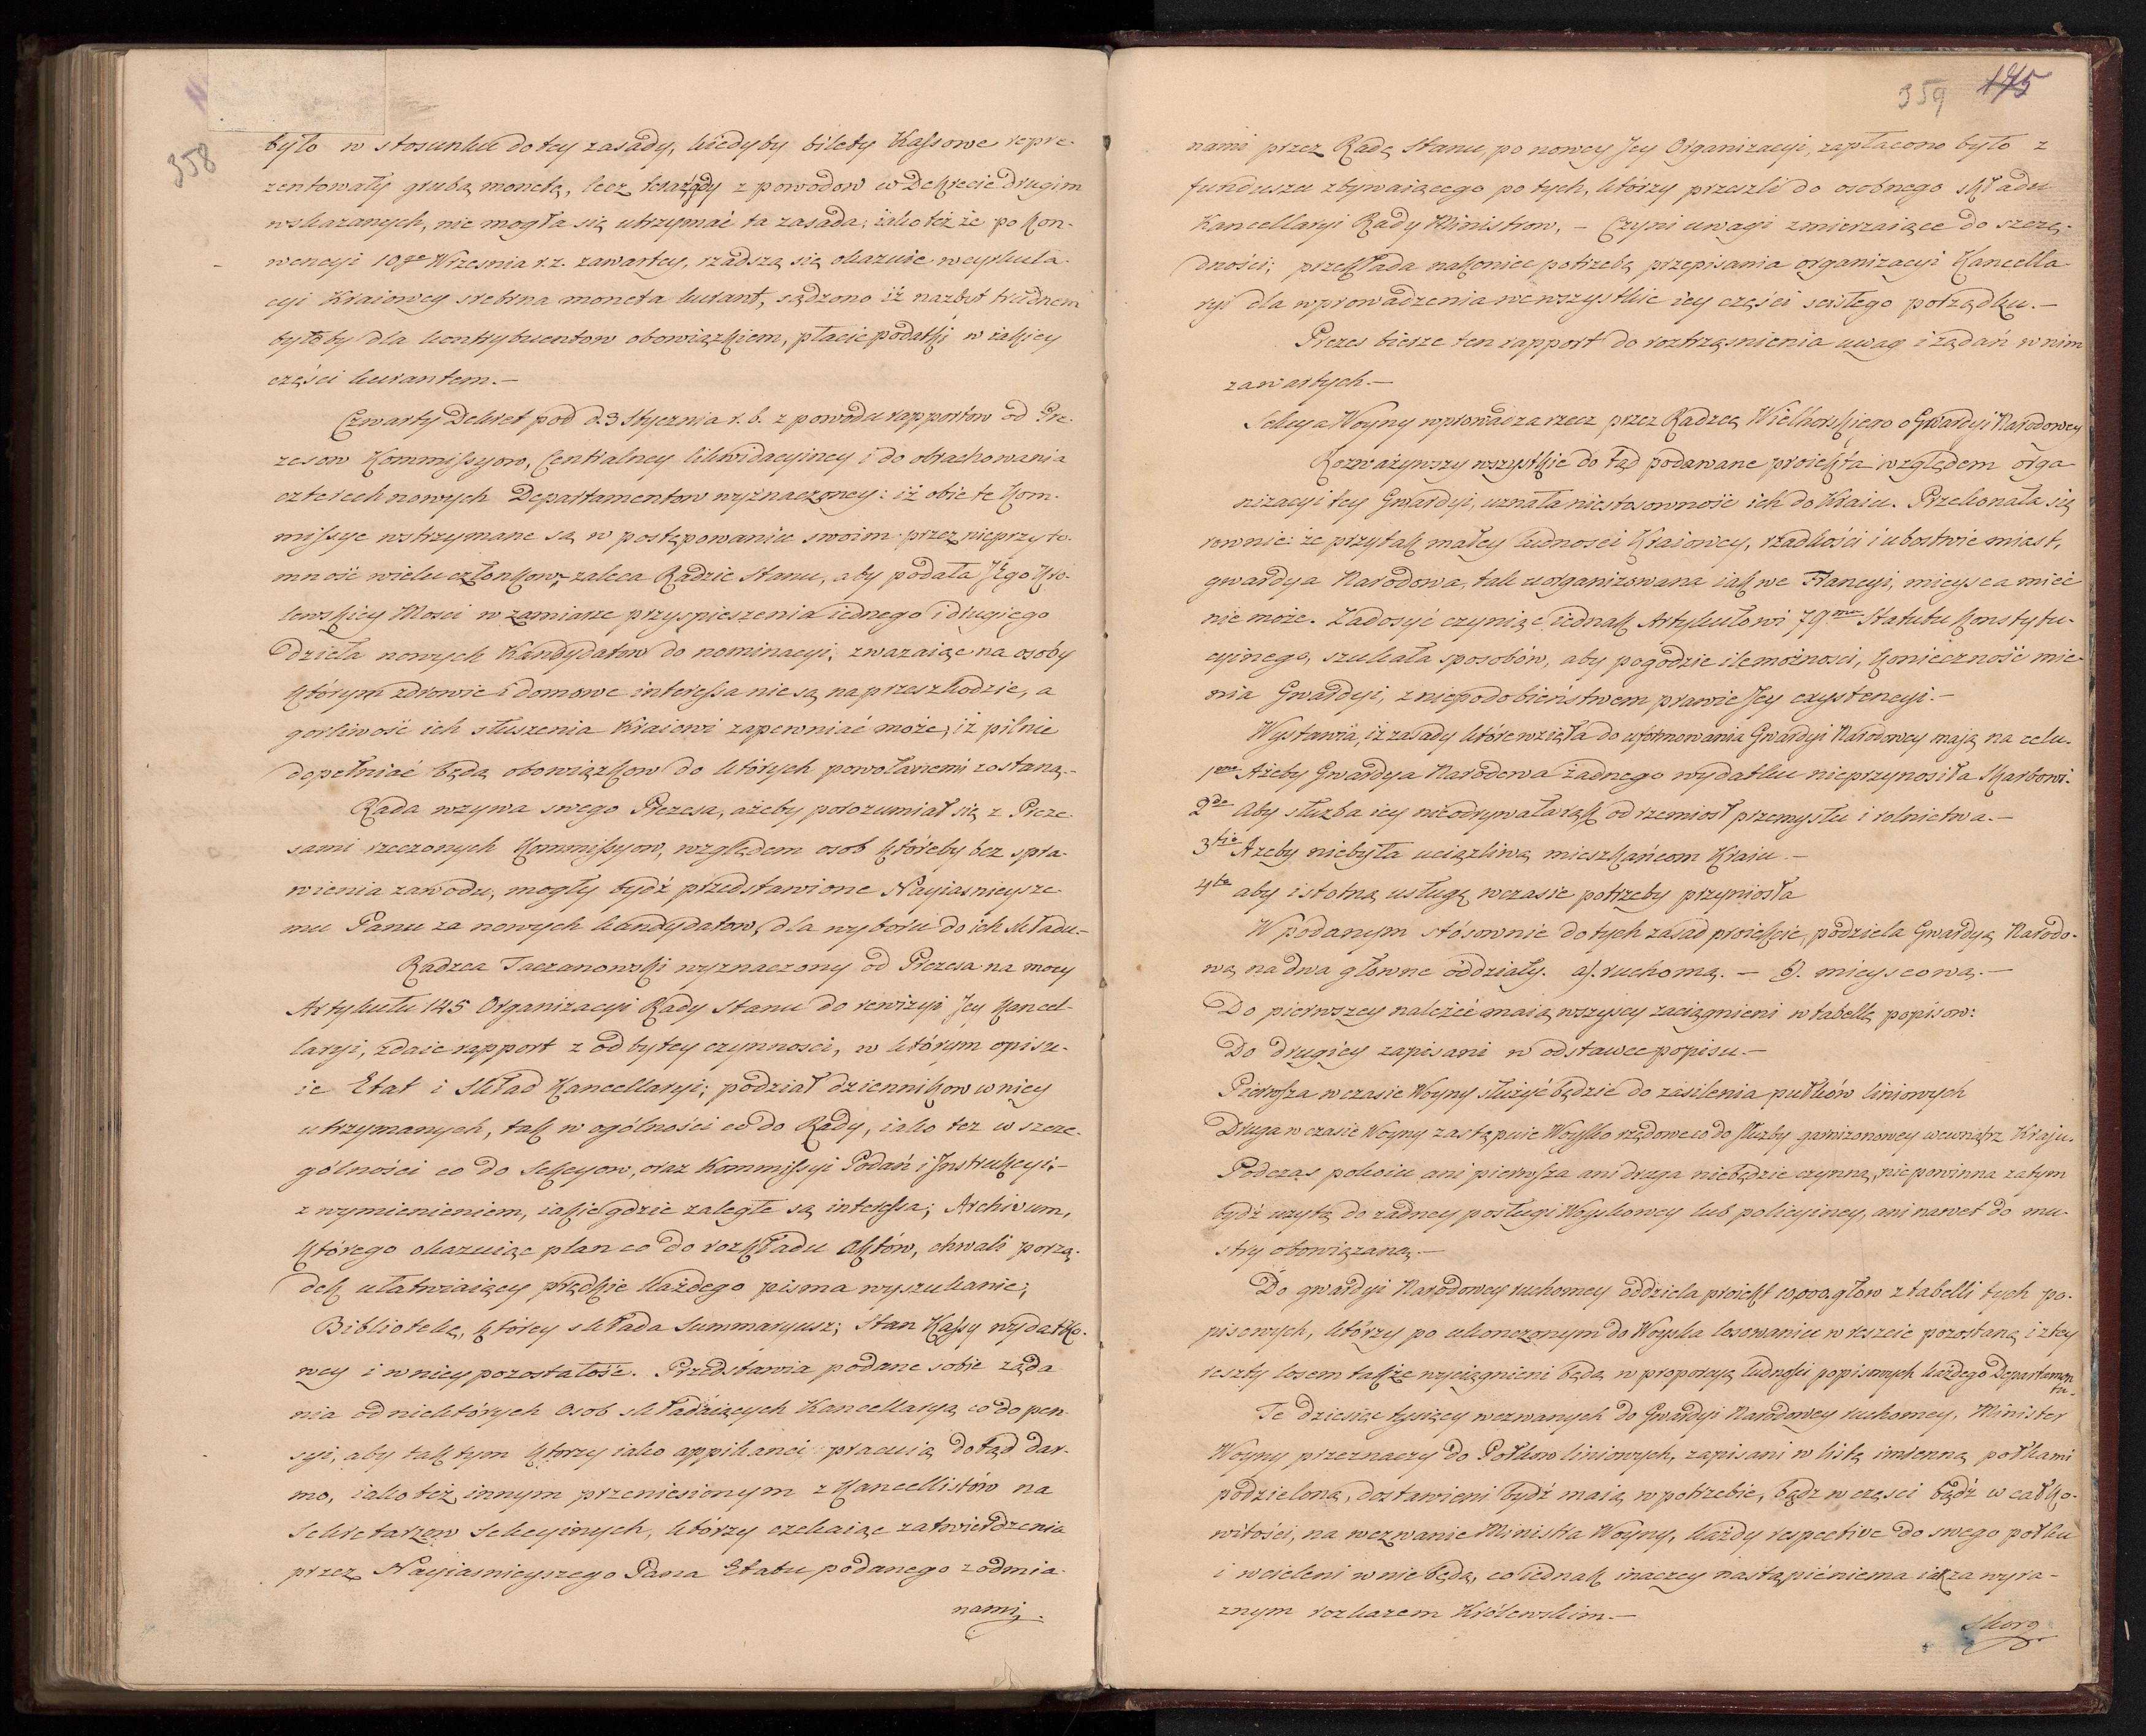 358
było w stosunku do tey zasady, kiedyby bilety Kassowe repre-
zentowały grubą monetę, lecz teraz gdy z powodow co Dekrecie drugim
wskazanych, nie mogła się utrzymać ta zasada; iako też że po Kon-
wencyi 10go Wrzesnia r.z. zawartey, rzadszą się okazuie w cyrkula-
cyi Kraiowey srebrna moneta kurant, sądzono iż nazbyt trudnem
byłoby dla kontrybuentow obowiązkiem, płacić podatki w iakiey
części kurantem.—
Czwarty Dekret pod d. 3 Stycznia r.b. z powodu rapportow od Pre-
zesow Kommissyow, Centralney likwidacyiney i do obrachowania
czterech nowych Departamentow wyznaczoney: iż obie te Kom-
missye wstrzymane są w postępowaniu swoim przez nieprzyto-
mność wielu członkow, zaleca Radzie Stanu, aby podała JKgo Kró-
lewskiey Mosci w zamiarze przyspieszenia iednego i drugiego
dzieła nowych Kandydatow do nominacyi, zwazaiąc na osoby
którym zdrowie i domowe interessa nie są na przeszkodzie, a
gorliwość ich służenia Kraiowi zapewniać może, iż pilnie
dopełniać będą obowiązkow do których powołanemi zostaną.—
Rada wzywa swego Prezesa, ażeby porozumiał się z Preze-
sami rzeczonych Kommissyow, względem osob któreby bez spra-
wienia zawodu, mogły bydź przedstawione Nayiasnieysze-
mu Panu za nowych kandydatow, dla wyboru do ich składu.—
Radzca Taczanowski wyznaczony od Prezesa na mocy
Artykułu 145 Organizacyi Rady Stanu do rewizyi Jey Kancel-
laryi, zdaie rapport z odbytey czynnosci, w którym opisu-
ie Etat i skład Kancellaryi; podział dziennikow w niey
utrzymanych, tak w ogólności co do Rady, iako tez w szcze-
gólności co do Sekcyow, oraz Kommissyi Podań i Instrukcyi,—
z wymienieniem, iakie gdzie zaległe są interessa; Archivum,
którego okazuiąc plan co do rozkładu Aktów, chwali porzą-
dek ułatwiaiący prędkie każdego pisma wyszukanie;
Bibliotekę, którey składa Summaryusz; Stan Kassy wydatko-
wey i w niey pozostałość. Przedstawia podane sobie żąda
nia od niektórych Osob składaiących Kancellaryą co do pen-
syi, aby tak tym którzy iako applikanci pracuią dotąd dar-
mo, iako też innym przeniesionym z Kancellistów na
Sekretarzow Sekcyinych, którzy czekaiąc zatwierdzenia
przez Nayiasnieyszego Pana Etatu podanego z odmia-
nami
359 175
nami przez Radę Stanu, po nowey Jey Organizacyi, zapłacono było z
funduszu zbywaiącego po tych, którzy przeszli do osobnego składu
Kancellaryi Rady Ministrow, — Czyni uwagi zmierzaiące do szczę-
dności; przekłada nakoniec potrzebę przepisania organizacyi Kancella-
ryi dla wprowadzenia we wszystkie iey części scisłego porządku.—
Prezes bierze ten rapport do roztrząsnienia uwag i żądań w nim
zawartych.—
Sekcya Woyny wprowadza rzecz przez Radzcę Wielhorskiego o Gwardyi Narodowey
Rozważywszy wszystkie do tąd podawane proiekta względem orga
nizacyi tey Gwardyi, uznała niestosowność ich do Kraiu. Przekonała się
rownie: że przy tak małey ludnosci Kraiowey, rzadkości i ubostwie miast,
gwardya Narodowa, tak uorganizowana iak we Francyi, mieysca mieć
nie może. Zadosyć czyniąc iednak Artykułowi 79mu Statutu Konstytu-
cyinego, szukała sposobów, aby pogodzić ile możności, konieczność mie-
nia Gwardyi, z niepodobieństwem prawie Jey exystencyi.—
Wystawia, iż zasady które wzięła do uformowania Gwardyi Narodowey mają na celu.
1mo Ażeby Gwardya Narodowa żadnego wydatku nieprzynosiła Skarbowi.
2do Aby służba iey nieodrywała rąk od rzemiosł przemysłu i rolnictwa.—
3tio Ażeby niebyła uciążliwą mieszkańcom Kraiu.—
4to aby istotną usługę w czasie potrzeby przyniosła
W podanym stósownie do tych zasad proiekcie, podziela Gwardyą Narodo-
wą na dwa główne oddziały. a). ruchomą. — b). mieyscową.—
Do pierwszey należéć maią wszyscy zaciągnieni w tabellę popisow:
Do drugiéy zapisani w odstawce popisu.—
Pierwsza w czasie Woyny służyć będzie do zasilenia pułków liniowych
Druga w czasie Woyny zastępuie Woysko rzędowe co do służby garnizonowey wewnątrz Kraju.
Podczas pokoiu ani pierwsza ani druga niebędzie czynną, nie powinna zatym
bydź użytą do żadney posługi Woyskowey lub policyiney, ani nawet do mu-
stry obowiązaną.—
Do gwardyi Narodowey ruchomey oddziela proiekt 10,000. głów z tabelli tych po-
pisowych, którzy po ukonczonym do Woyska losowaniu w reszcie pozostaną i z tey
reszty losem także wyciągnieni będą w proporcyą ludnosci popisowych każdego Departamen-
tu.
Te dziesięć tysięcy wezwanych do Gwardyi Narodowey ruchomey, Minister
Woyny przeznaczy do Półkow liniowych, zapisani w listę imienną półkami
podzieloną, dostawieni bydź maią w potrzebie, bądz w części bądź w całko-
witości, na wezwanie Ministra Woyny, każdy respective do swego pólku
i wcieleni w nie będą, co iednak inaczey nastąpić niema iak za wyra-
znym rozkazem Królewskim.—
Skoro